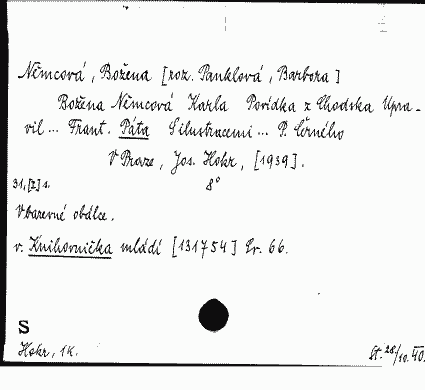 Němcová, Božena [roz. Panklová, Barbora]
Božena Němcová Karla Povídka z Chodska Upra-
vil ... Frant. Páta S ilustracemi ... P. Černého
V Praze, Jos. Hokr, [1939].
31, [2] s. 8°
V barevné obálce.
v. Knihovnička mládí [131754] Čr. 66.
S
Hokr, 1K. St. 28/10. 40.